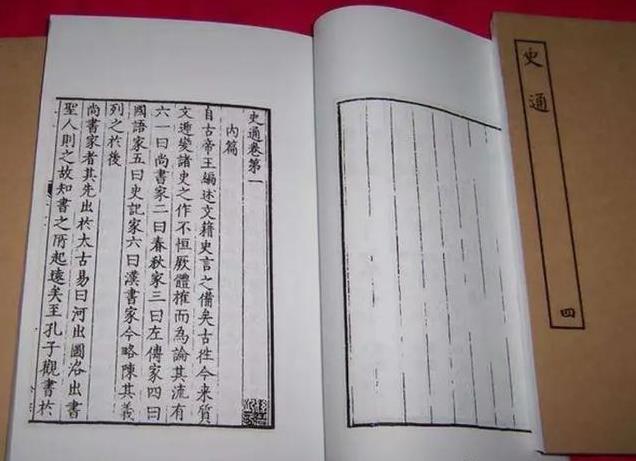 史通卷第一
內篇
自古帝王編述文籍史言之備矣古往今來質
文遞變諸史之作不恒厥體榷而為論其流有
六一曰尚書家二曰春秋家三曰左傳家四曰
國語家五曰史記家六曰漢書家今略陳其義
列之於後
尚書家者其先出於太古易曰河出圖洛出書
聖人則之故知書之所起遠矣至孔子觀書於
史通
四